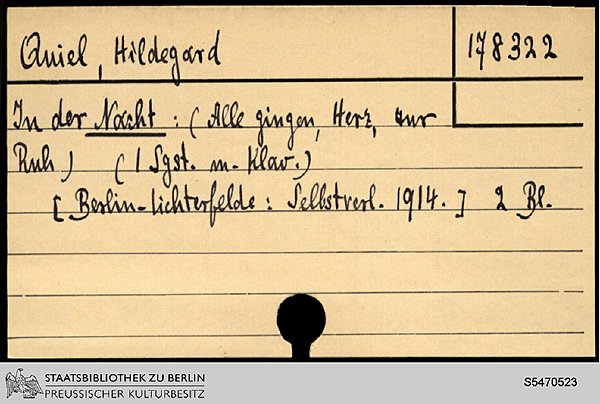 Quiel, Hildegard
178322
In der Nacht : (Alle gingen, Herz, zur
Ruh) (1 Sgst. m. Klav.)
[Berlin-Lichterfelde : Selbstverl. 1914.] 2 Bl.
STAATSBIBLIOTHEK ZU BERLIN
PREUSSISCHER KULTURBESITZ
S5470523